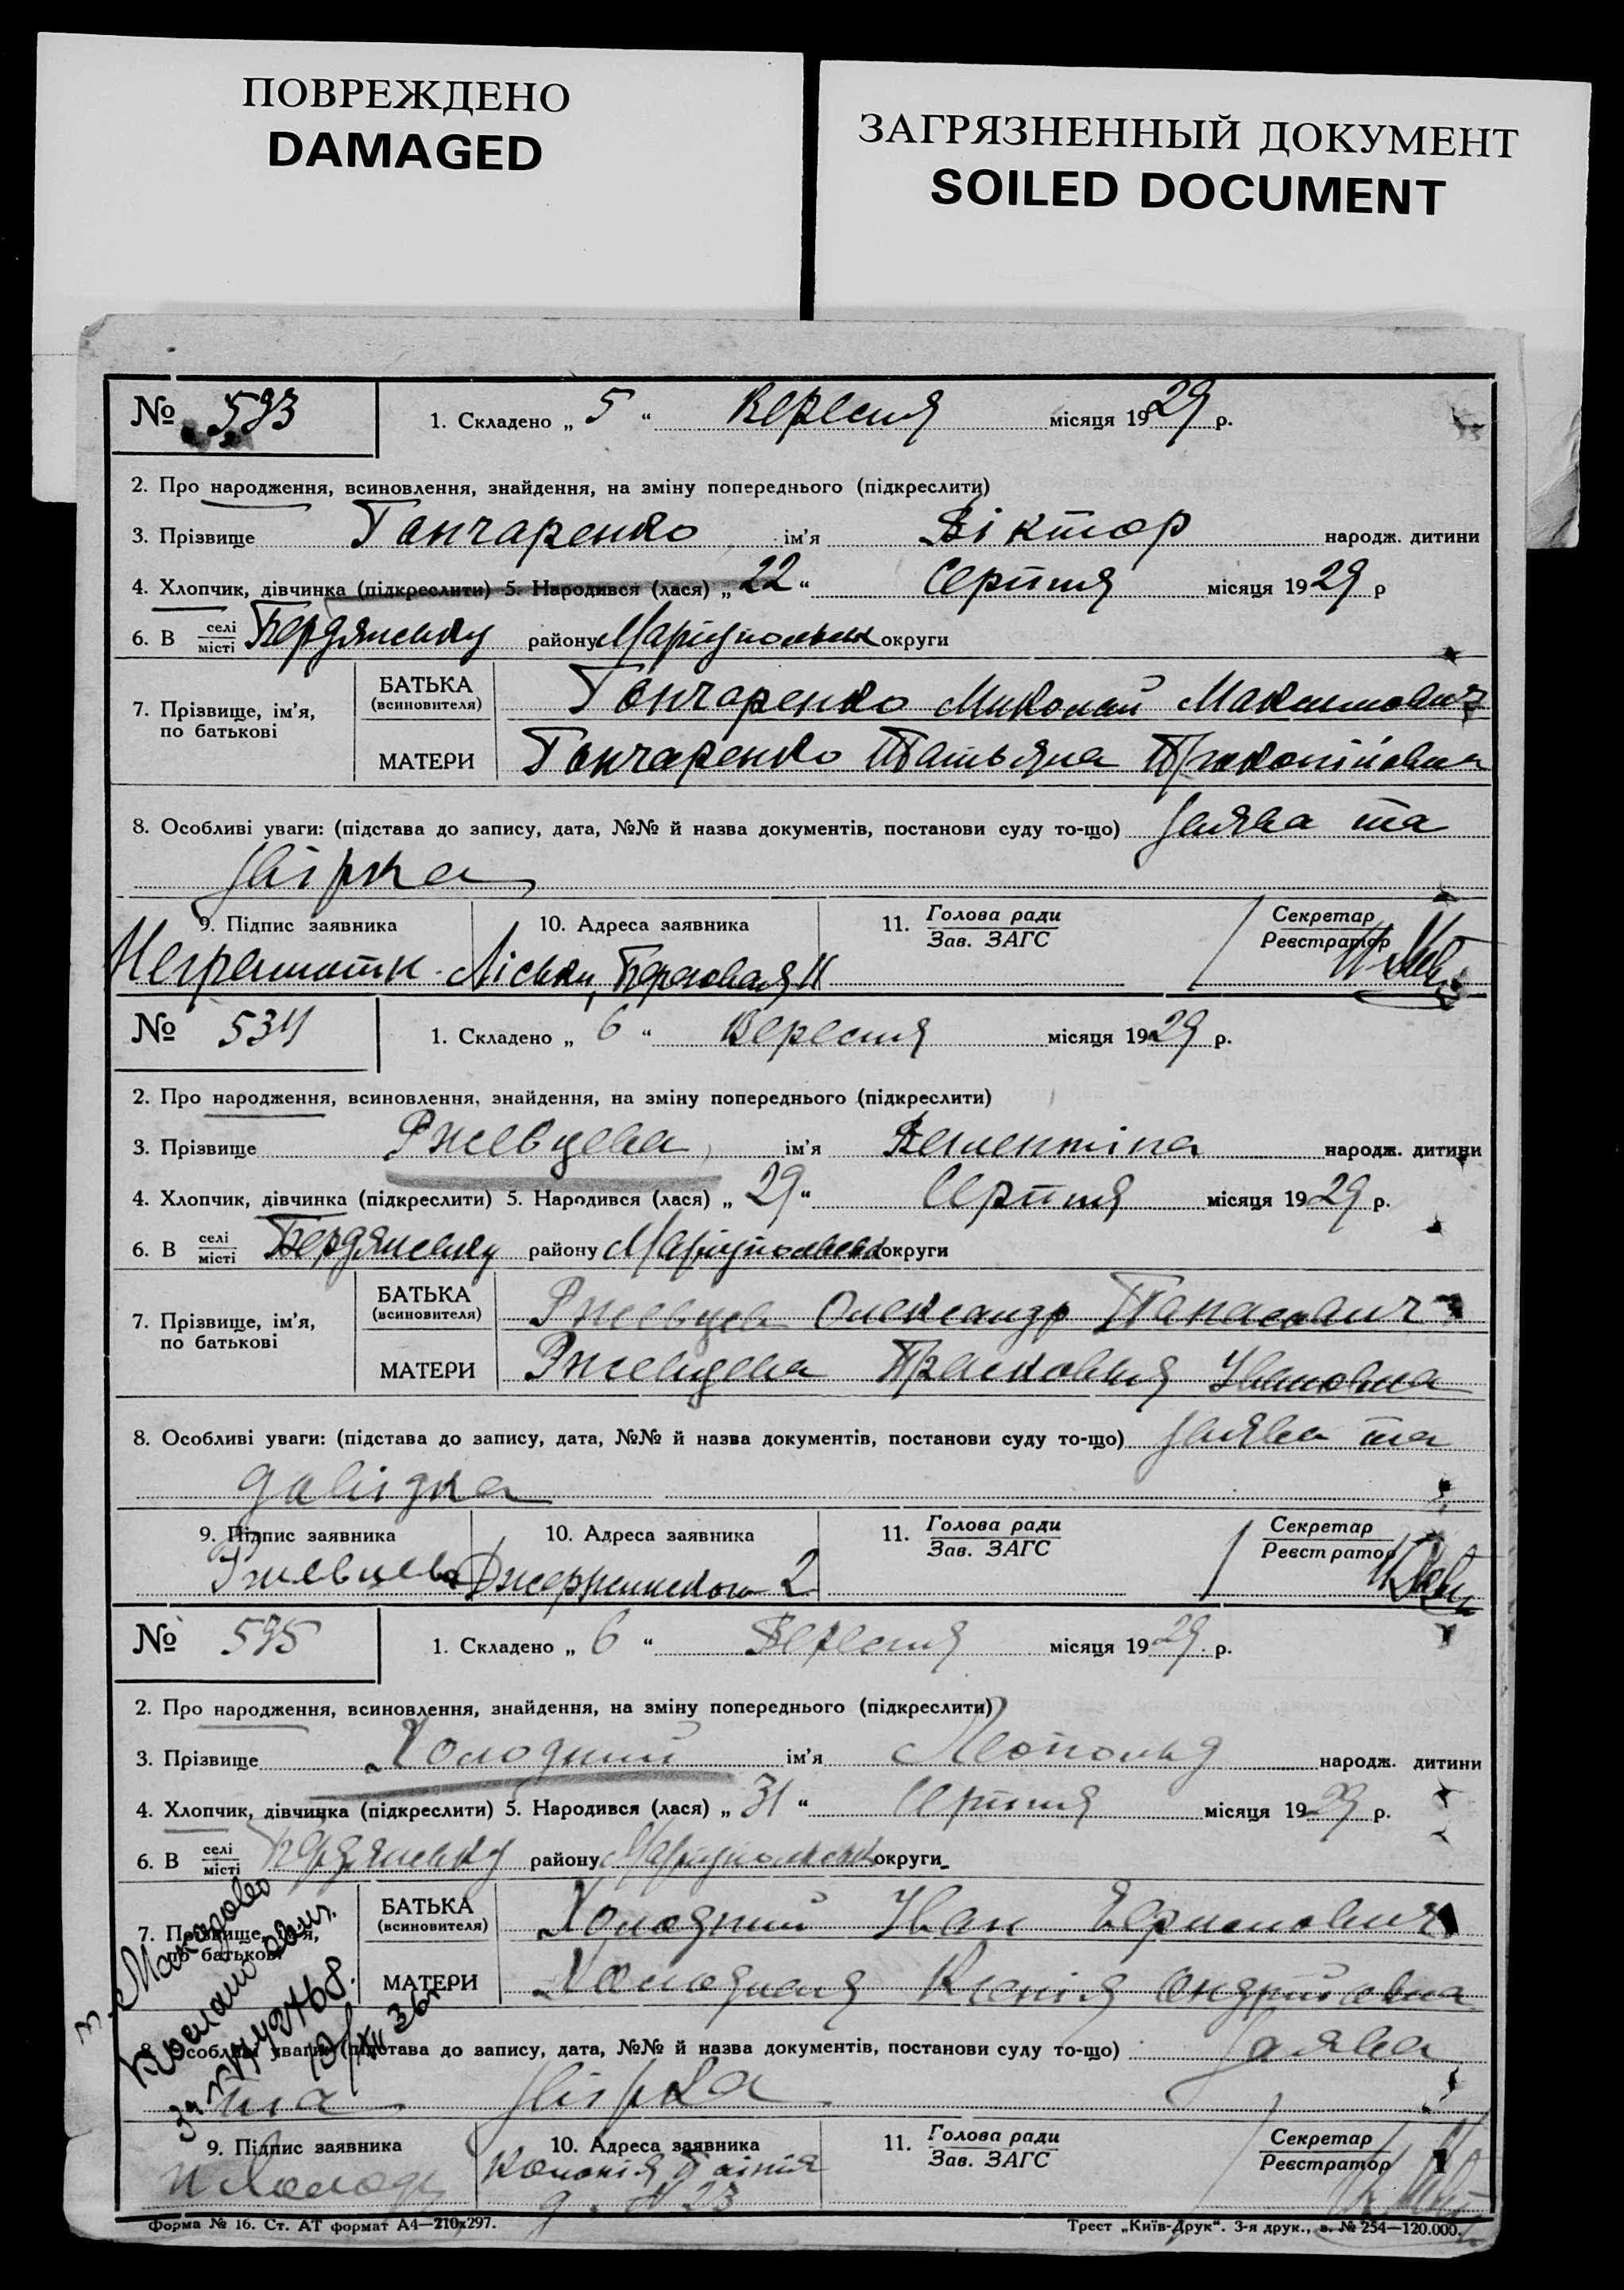 ПОВРЕЖДЕНО
DAMAGED
ЗАГРЯЗНЕННЫЙ ДОКУМЕНТ
SOILED DOCUMENT
№ 593
1. Складено „ 5 “ Вересня місяця 1929 р.
2. Про народження, всиновлення, знайдення, на зміну попереднього (підкреслити)
3. Прізвище Гончаренко ім’я Віктор народж. дитини
4. Хлопчик, дівчинка (підкреслити) 5. Народився (лася) „ 22 “ Серпня місяця 1929 р
6. В селі місті Бердянську району Маріупольськ округи
7. Прізвище, ім’я, по батькові
БАТЬКА (всиновителя) Гончаренко Миколай Максимович
МАТЕРИ Гончаренко Татьяна Прокопіївна
8. Особливі уваги: (підстава до запису, дата, №№ й назва документів, постанови суду то-що) Заява та
Звірка
9. Підпис заявника 10. Адреса заявника 11. Голова ради Зав. ЗАГС Секретар Реєстратор
Неграмотн. Ліськи, Березовая 11
№ 594
1. Складено „ 6 “ Вересня місяця 1929 р.
2. Про народження, всиновлення, знайдення, на зміну попереднього (підкреслити)
3. Прізвище Ржевцева ім’я Валентіна народж. дитини
4. Хлопчик, дівчинка (підкреслити) 5. Народився (лася) „ 29 “ Серпня місяця 1929 р.
6. В селі місті Бердянську району Маріупольськ округи
7. Прізвище, ім’я, по батькові
БАТЬКА (всиновителя) Ржевцев Олександр Панасович
МАТЕРИ Ржевцева Прасковья Ивановна
8. Особливі уваги: (підстава до запису, дата, №№ й назва документів, постанови суду то-що) Заява та
довідка
9. Підпис заявника 10. Адреса заявника 11. Голова ради Зав. ЗАГС Секретар Реєстратор
Ржевцева 2
№ 595
1. Складено „ 6 “ Вересня місяця 1929 р.
2. Про народження, всиновлення, знайдення, на зміну попереднього (підкреслити)
3. Прізвище Холодний ім’я Леопольд народж. дитини
4. Хлопчик, дівчинка (підкреслити) 5. Народився (лася) „ 31 “ Серпня місяця 1929 р.
6. В селі місті Бердянську району Маріупольськ округи
7. Прізвище, ім’я, по батькові
БАТЬКА (всиновителя) Холодний Иван
МАТЕРИ Холодная Ксенія Андріївна
8. Особливі уваги: (підстава до запису, дата, №№ й назва документів, постанови суду то-що) Заява
та Звірка
9. Підпис заявника 10. Адреса заявника 11. Голова ради Зав. ЗАГС Секретар Реєстратор
Колонія
№ 23
Форма № 16. Ст. АТ формат А4—210х297.
Трест „Київ-Друк“. 3-я друк., в. № 254—120.000.